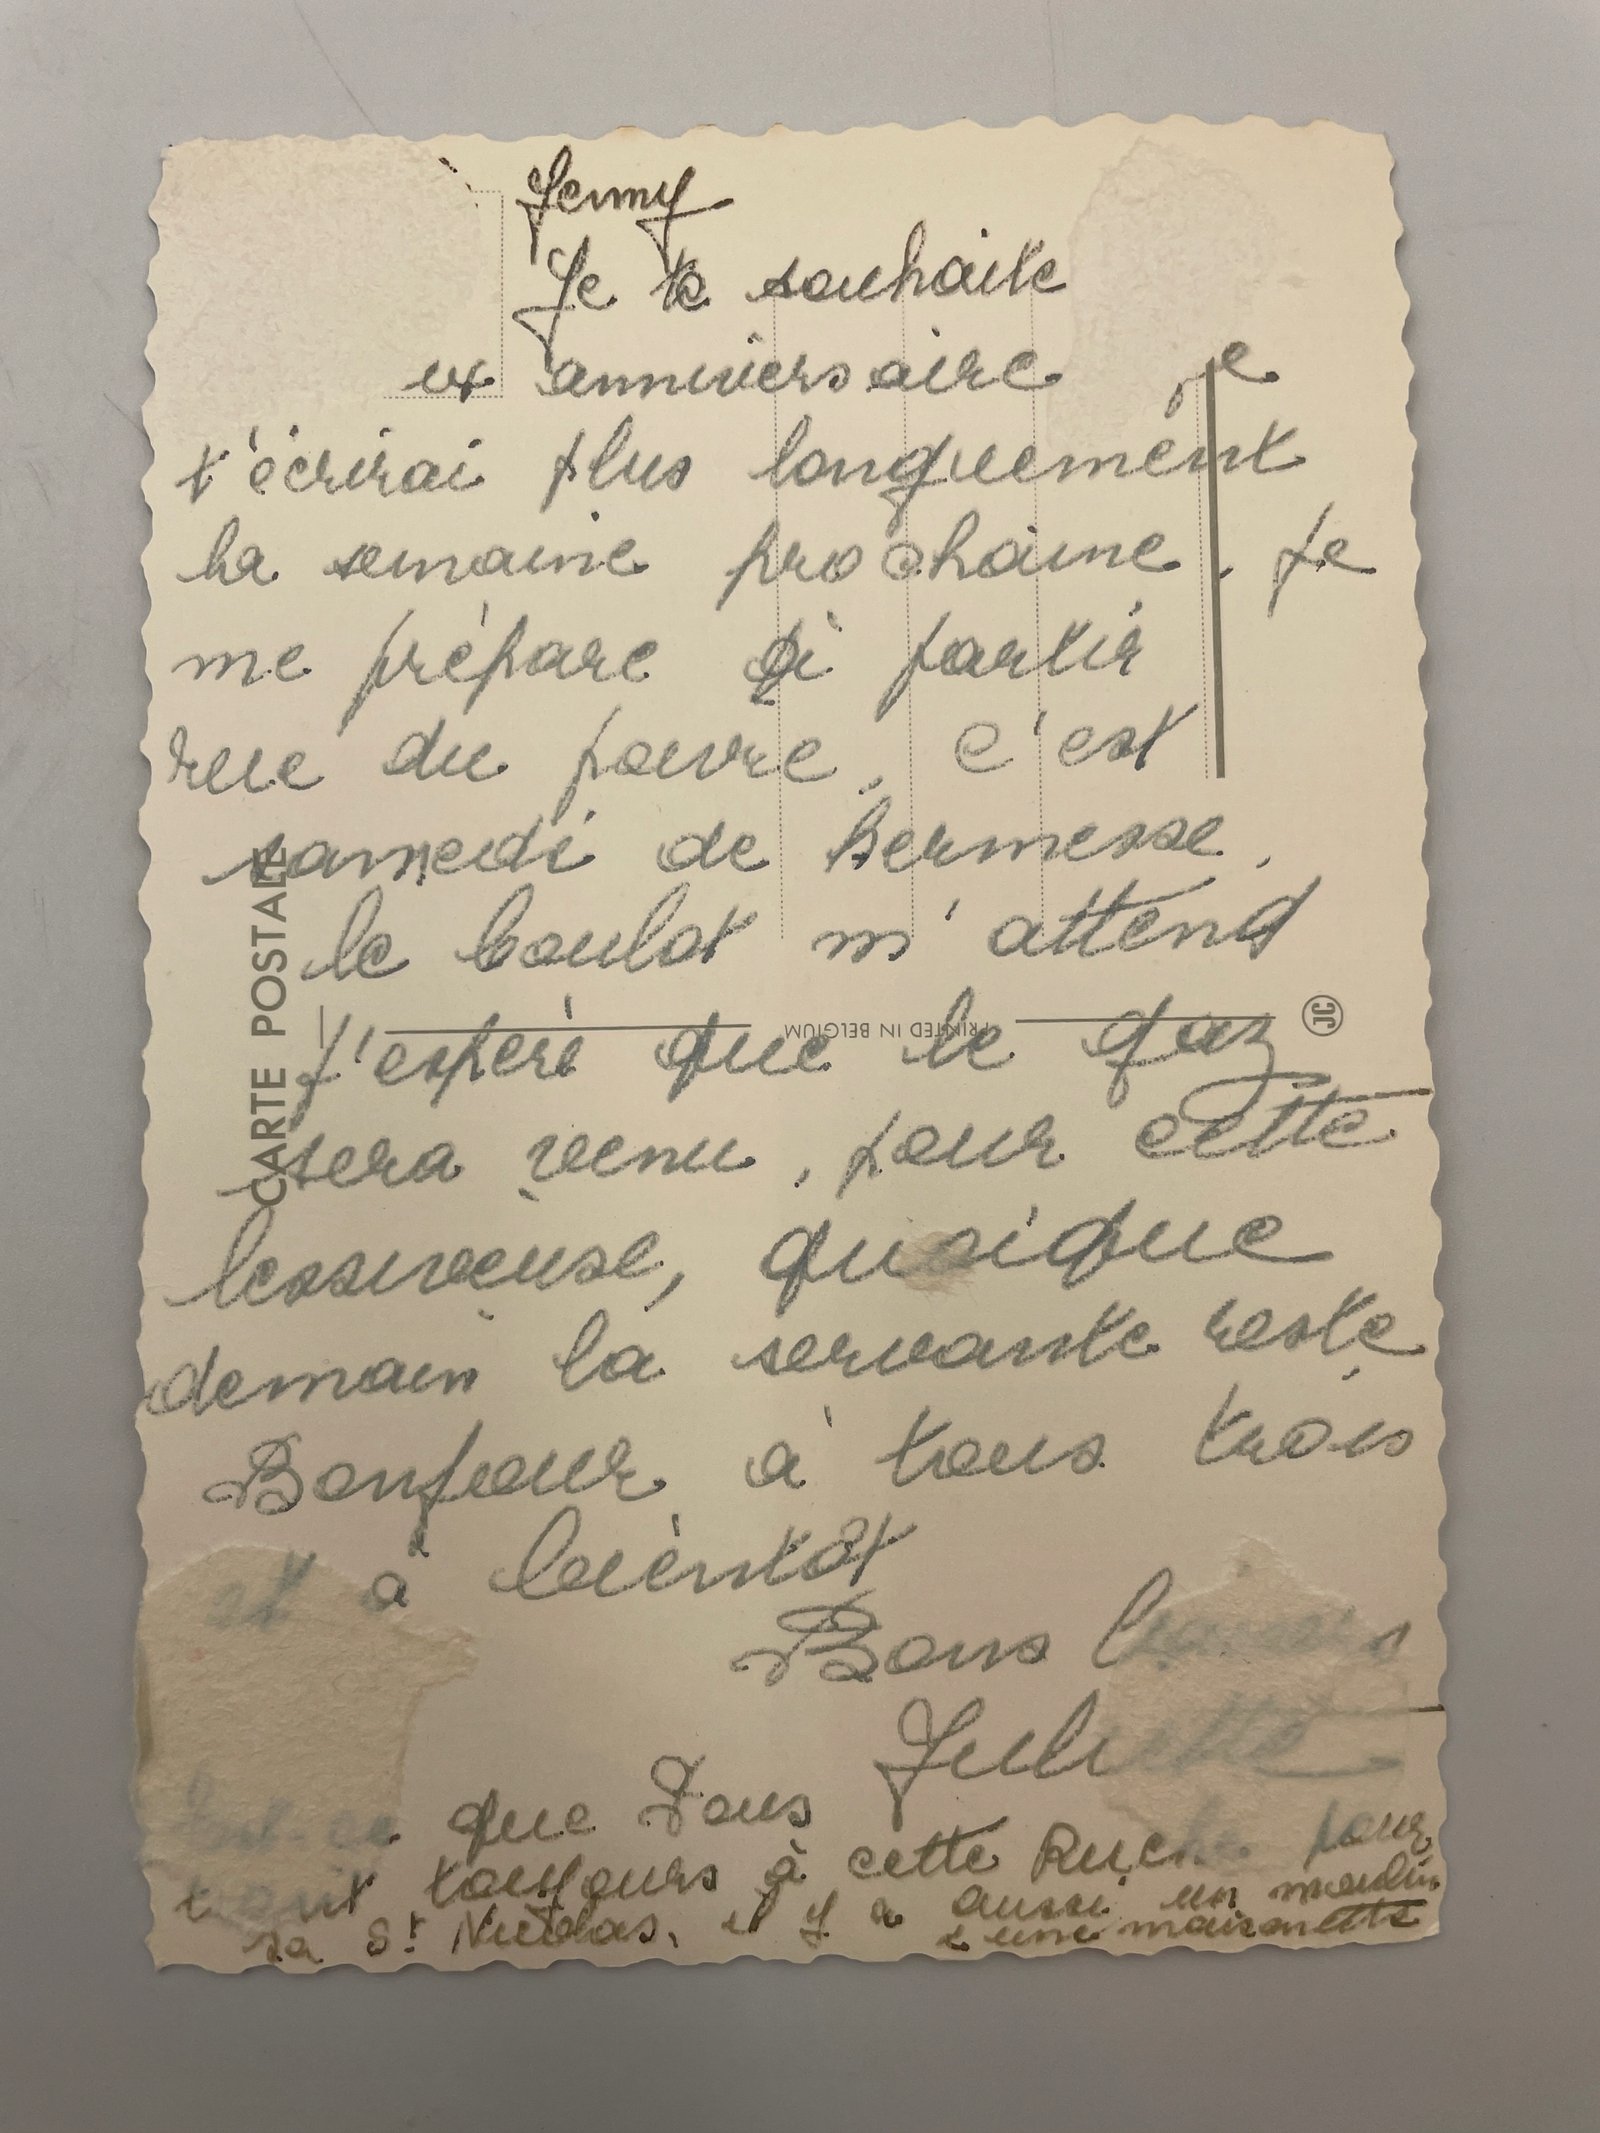 Jenny
Je te souhaite
ux anniversaire je
t'écrirai plus longuement
la semaine prochaine. Je
me prépare à partir
rue du poivre, c'est
samedi de Kermesse,
le boulot m'attend
J'espère que le gaz
sera venu, pour cette
lessiveuse, quoique
demain la servante reste
Bonjour à tous trois
et à bientôt
Bons
Juliette
Est-ce que Vous
toujours à cette Ruche pour
sa St Nicolas, il y a aussi un moulin
& une maisonette
CARTE POSTALE
PRINTED IN BELGIUM
JC